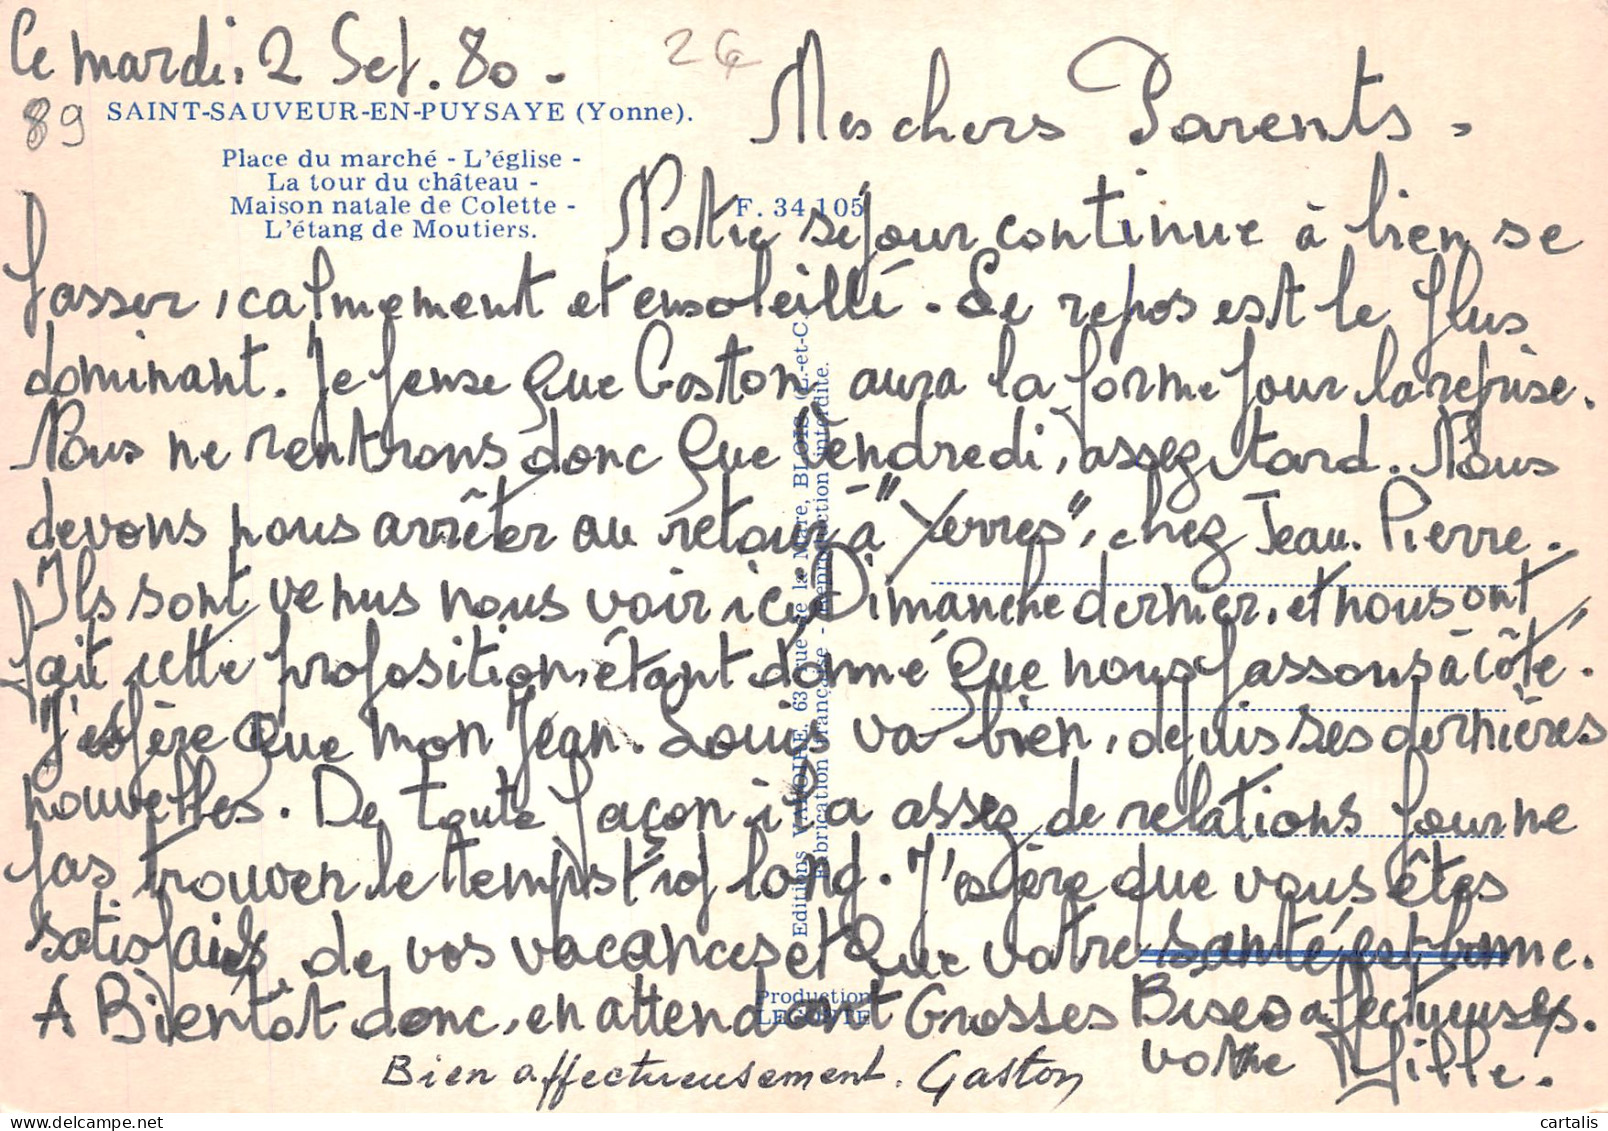 Ce mardi, 2 Sept. 80 -
2€
89
SAINT-SAUVEUR-EN-PUYSAYE (Yonne).
Place du marché - L'église -
La tour du château -
Maison natale de Colette -
L'étang de Moutiers.
F. 34 105
Mes chers Parents.
Notre séjour continue à bien se
passer, calmement et ensoleillé. Le repos est le plus
dominant. Je pense que Gaston aura la forme pour la reprise.
Nous ne rentrons donc que Vendredi, assez tard. Nous
devons nous arrêter au retour à "Yerres", chez Jean-Pierre.
Ils sont venus nous voir ici Dimanche dernier, et nous ont
fait cette proposition, étant donné que nous passons à côté.
J'espère que mon Jean-Louis va bien, depuis ses dernières
nouvelles. De toute façon il a assez de relations pour ne
pas trouver le temps trop long. J'espère que vous êtes
satisfaits de vos vacances et que votre santé est bonne.
A Bientôt donc, en attendant Grosses Bises affectueuses.
votre fille.
Bien affectueusement. Gaston
Editions VALOIRE, 63, rue de la Mare, BLOIS (L.-et-C.
Fabrication Française - Reproduction interdite.
Production
LECONTE
cartalis